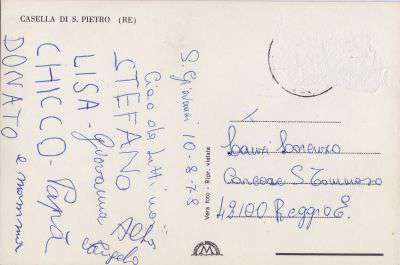 CASELLA DI S. PIETRO (RE)
S. Giovanni 10-8-78
Ciao da tutti noi
STEFANO ALDO
LISA - Giovanna Angela
CHICCO - Papà
DONATO e mamma
Vera foto - Ripr. vietata
Lorenzo
S Tommaso
42100 Reggio E.
M